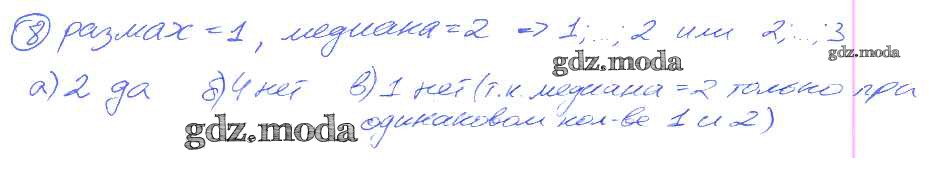 8 размах = 1, медиана = 2 => 1;...;2 или 2;...;3
gdz.moda
gdz.moda
а) 2 да б) 4 нет в) 1 нет (т.к. медиана = 2 только при
gdz.moda одинаковом кол-ве 1 и 2)